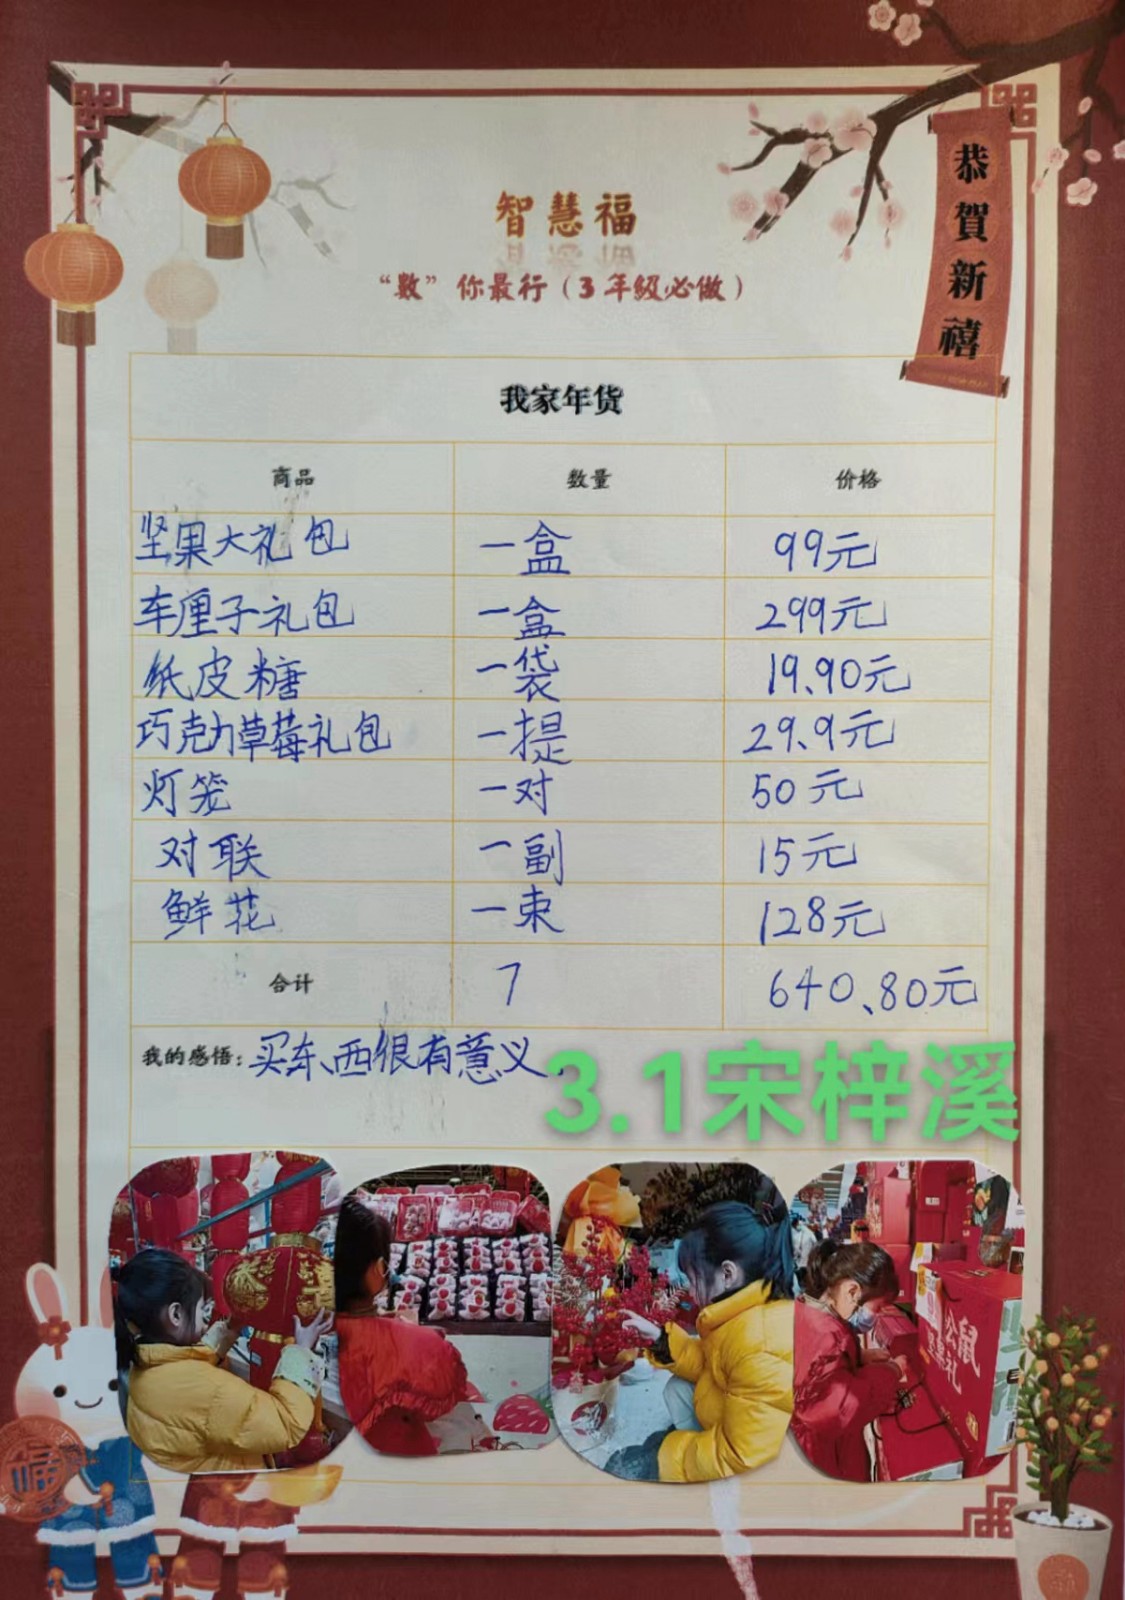 恭賀新禧
智慧福
“数”你最行（3年级必做）
我家年货
商品 数量 价格
坚果大礼包 一盒 99元
车厘子礼包 一盒 299元
纸皮糖 一袋 19.90元
巧克力草莓礼包 一提 29.9元
灯笼 一对 50元
对联 一副 15元
鲜花 一束 128元
合计 7 640.80元
我的感悟：买东西很有意义
3.1宋梓溪
福